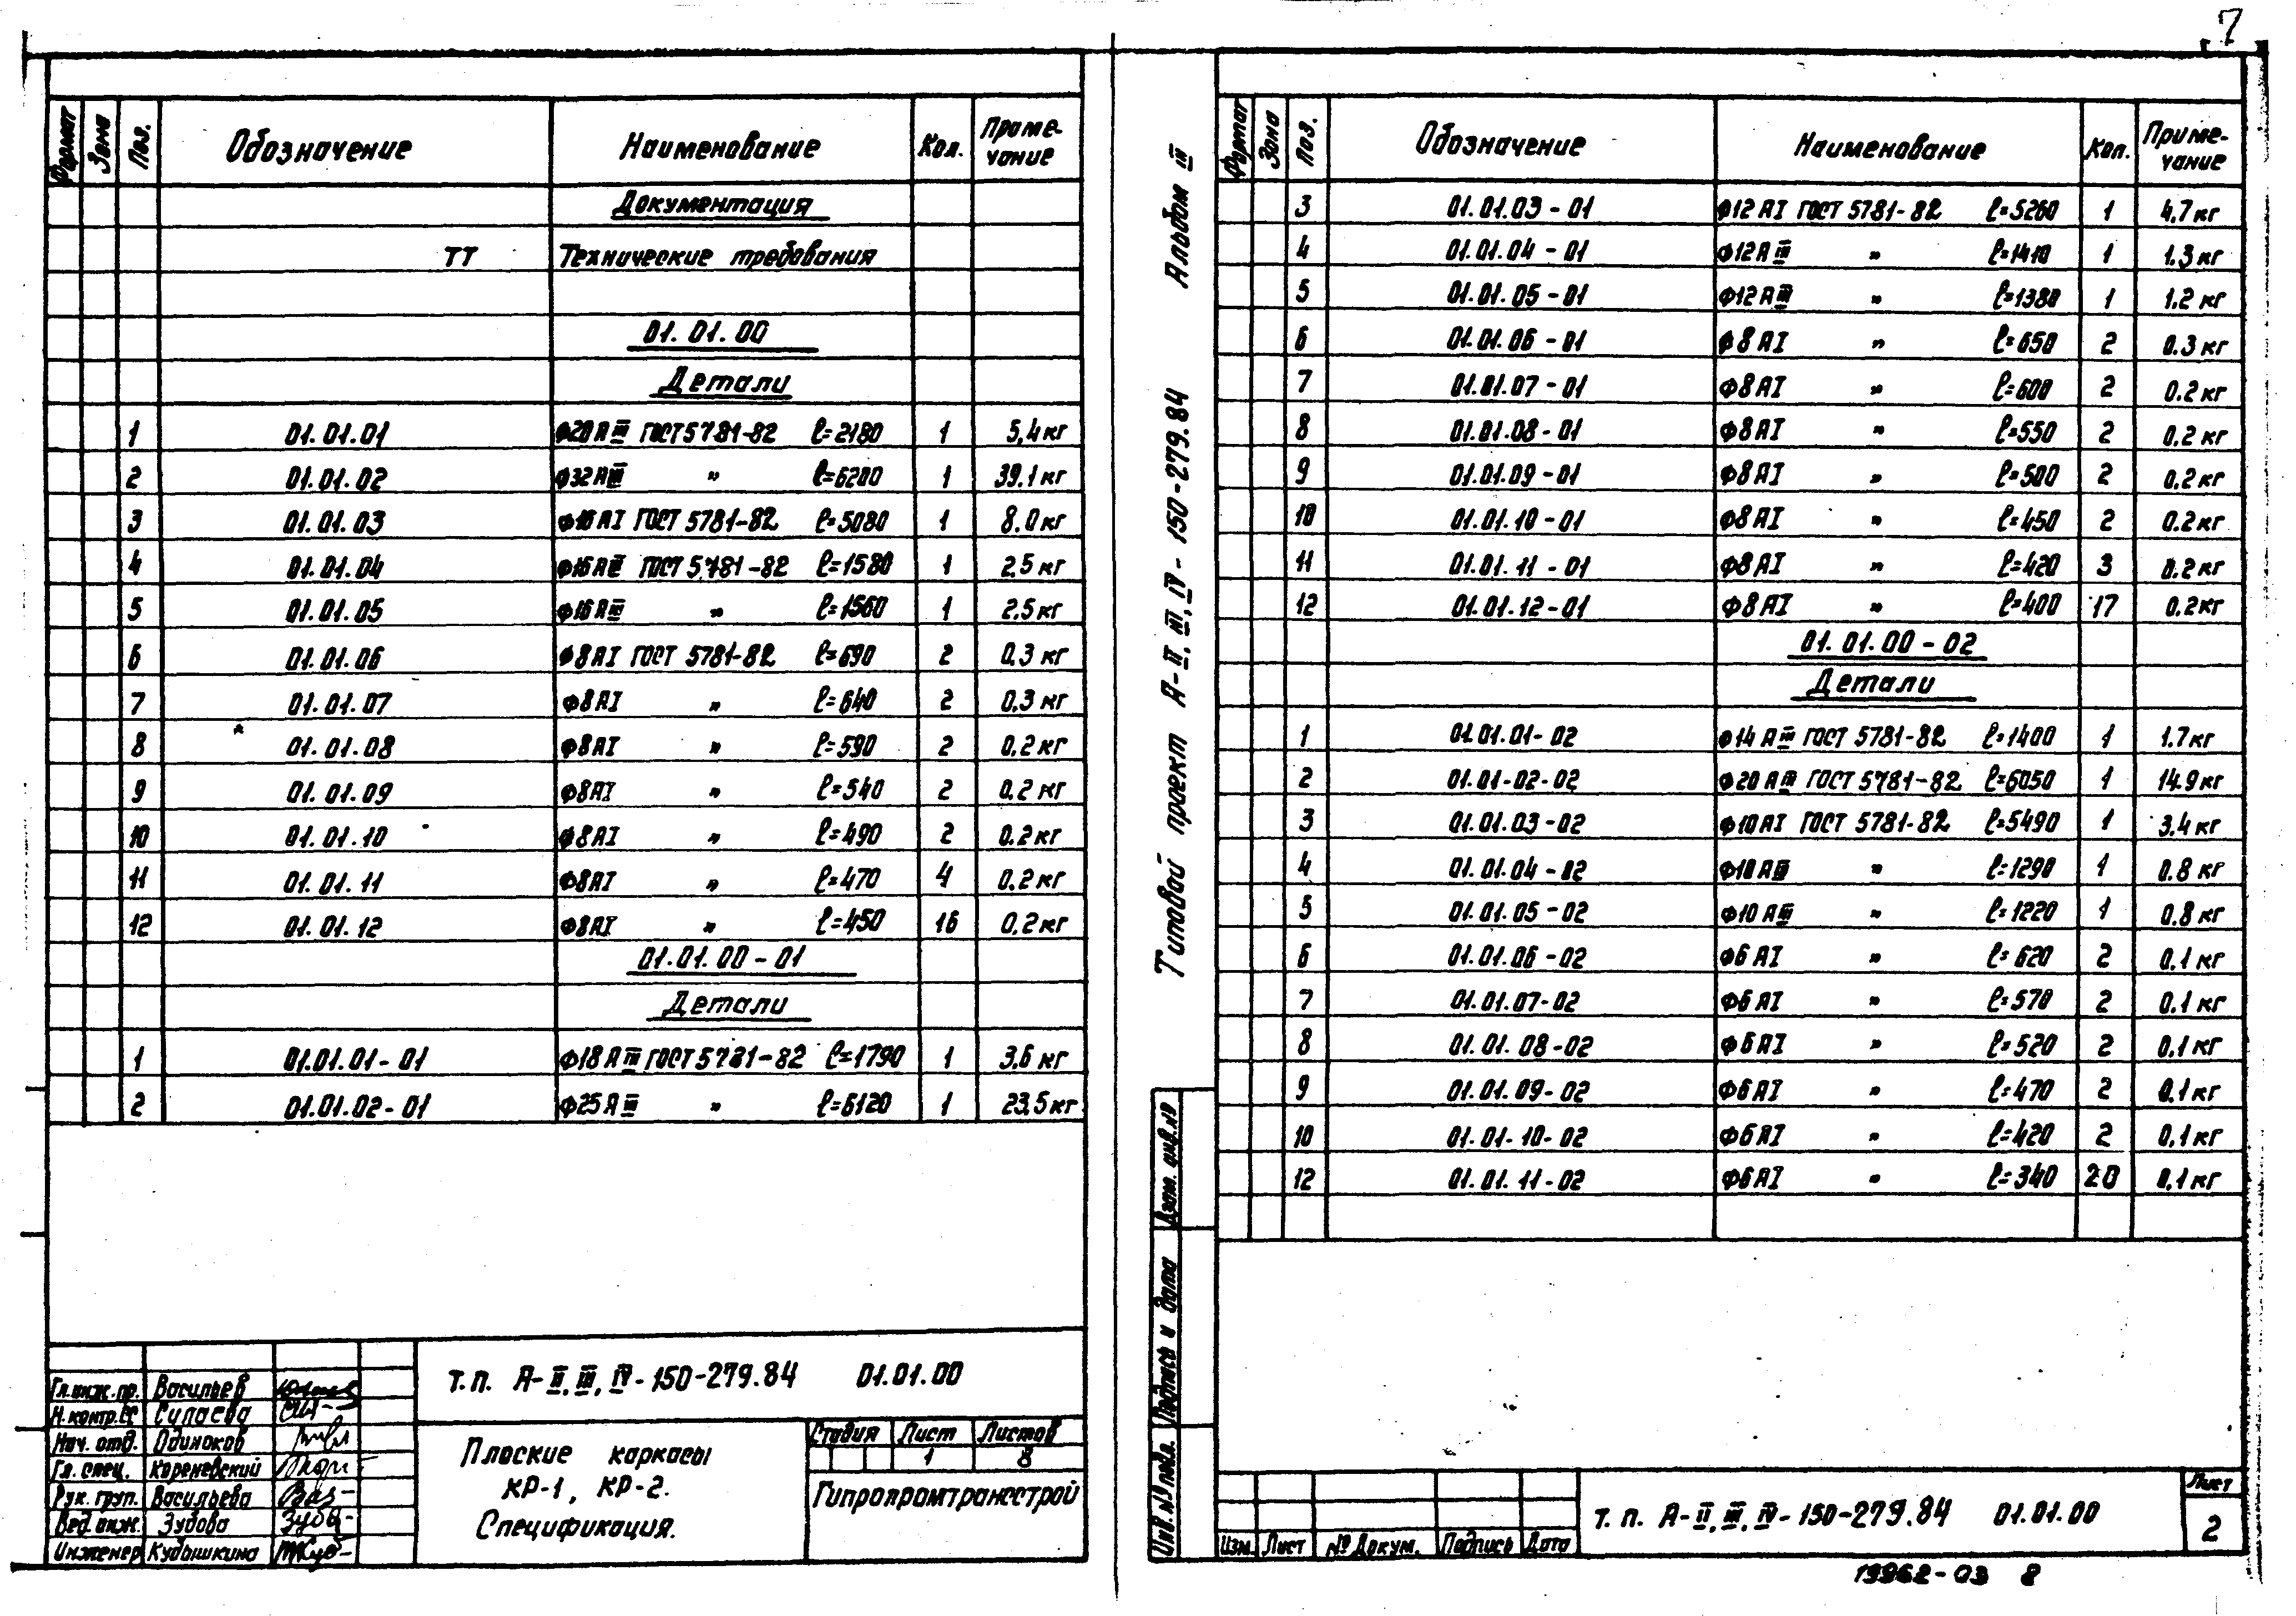 7
Формат Зона Поз. Обозначение Наименование Кол. Приме-чание
Документация
ТТ Технические требования
01.01.00
Детали
1 01.01.01 Ф20АIII ГОСТ 5781-82 ℓ=2180 1 5,4 кг
2 01.01.02 Ф32АIII " ℓ=6200 1 39,1 кг
3 01.01.03 Ф16АI ГОСТ 5781-82 ℓ=5080 1 8.0 кг
4 01.01.04 Ф16АIII ГОСТ 5781-82 ℓ=1580 1 2,5 кг
5 01.01.05 Ф16АIII " ℓ=1560 1 2,5 кг
6 01.01.06 Ф8АI ГОСТ 5781-82 ℓ=690 2 0,3 кг
7 01.01.07 Ф8АI " ℓ=640 2 0,3 кг
8 01.01.08 Ф8АI " ℓ=590 2 0,2 кг
9 01.01.09 Ф8АI " ℓ=540 2 0,2 кг
10 01.01.10 Ф8АI " ℓ=490 2 0,2 кг
11 01.01.11 Ф8АI " ℓ=470 4 0,2 кг
12 01.01.12 Ф8АI " ℓ=450 16 0,2 кг
01.01.00-01
Детали
1 01.01.01-01 Ф18АIII ГОСТ 5781-82 ℓ=1790 1 3,6 кг
2 01.01.02-01 Ф25АIII " ℓ=6120 1 23,5 кг
Гл.инж.пр. Васильев
Н.контр.СГ Силаева
Нач. отд. Одиноков
Гл. спец. Кореневский
Рук. груп. Васильева
Вед. инж. Зубова
Инженер Кубышкина
Т.П. А-II,III,IV-150-279.84 01.01.00
Плоские каркасы
КР-1, КР-2.
Спецификация.
Стадия Лист Листов
1 8
Гипропромтрансстрой
Типовой проект А-II,III,IV-150-279.84 Альбом III
Формат Зона Поз. Обозначение Наименование Кол. Приме-чание
3 01.01.03-01 Ф12АI ГОСТ 5781-82 ℓ=5260 1 4,7 кг
4 01.01.04-01 Ф12АIII " ℓ=1410 1 1.3 кг
5 01.01.05-01 Ф12АIII " ℓ=1380 1 1.2 кг
6 01.01.06-01 Ф8АI " ℓ=650 2 0.3 кг
7 01.01.07-01 Ф8АI " ℓ=600 2 0.2 кг
8 01.01.08-01 Ф8АI " ℓ=550 2 0.2 кг
9 01.01.09-01 Ф8АI " ℓ=500 2 0.2 кг
10 01.01.10-01 Ф8АI " ℓ=450 2 0.2 кг
11 01.01.11-01 Ф8АI " ℓ=420 3 0.2 кг
12 01.01.12-01 Ф8АI " ℓ=400 17 0.2 кг
01.01.00-02
Детали
1 01.01.01-02 Ф14АIII ГОСТ 5781-82 ℓ=1400 1 1.7 кг
2 01.01-02-02 Ф20АIII ГОСТ 5781-82 ℓ=6050 1 14.9 кг
3 01.01.03-02 Ф10АI ГОСТ 5781-82 ℓ=5490 1 3,4 кг
4 01.01.04-02 Ф10АIII " ℓ=1290 1 0.8 кг
5 01.01.05-02 Ф10АIII " ℓ=1220 1 0.8 кг
6 01.01.06-02 Ф6АI " ℓ=620 2 0,1 кг
7 01.01.07-02 Ф6АI " ℓ=570 2 0.1 кг
8 01.01.08-02 Ф6АI " ℓ=520 2 0,1 кг
9 01.01.09-02 Ф6АI " ℓ=470 2 0.1 кг
10 01.01-10-02 Ф6АI " ℓ=420 2 0,1 кг
12 01.01.11-02 Ф6АI " ℓ=340 20 0,1 кг
Инв.№ подл. Подпись и дата Взам. инв.№
Изм. Лист № Докум. Подпись Дата
Т.П. А-II,III,IV-150-279.84 01.01.00
Лист
2
19962-03 8